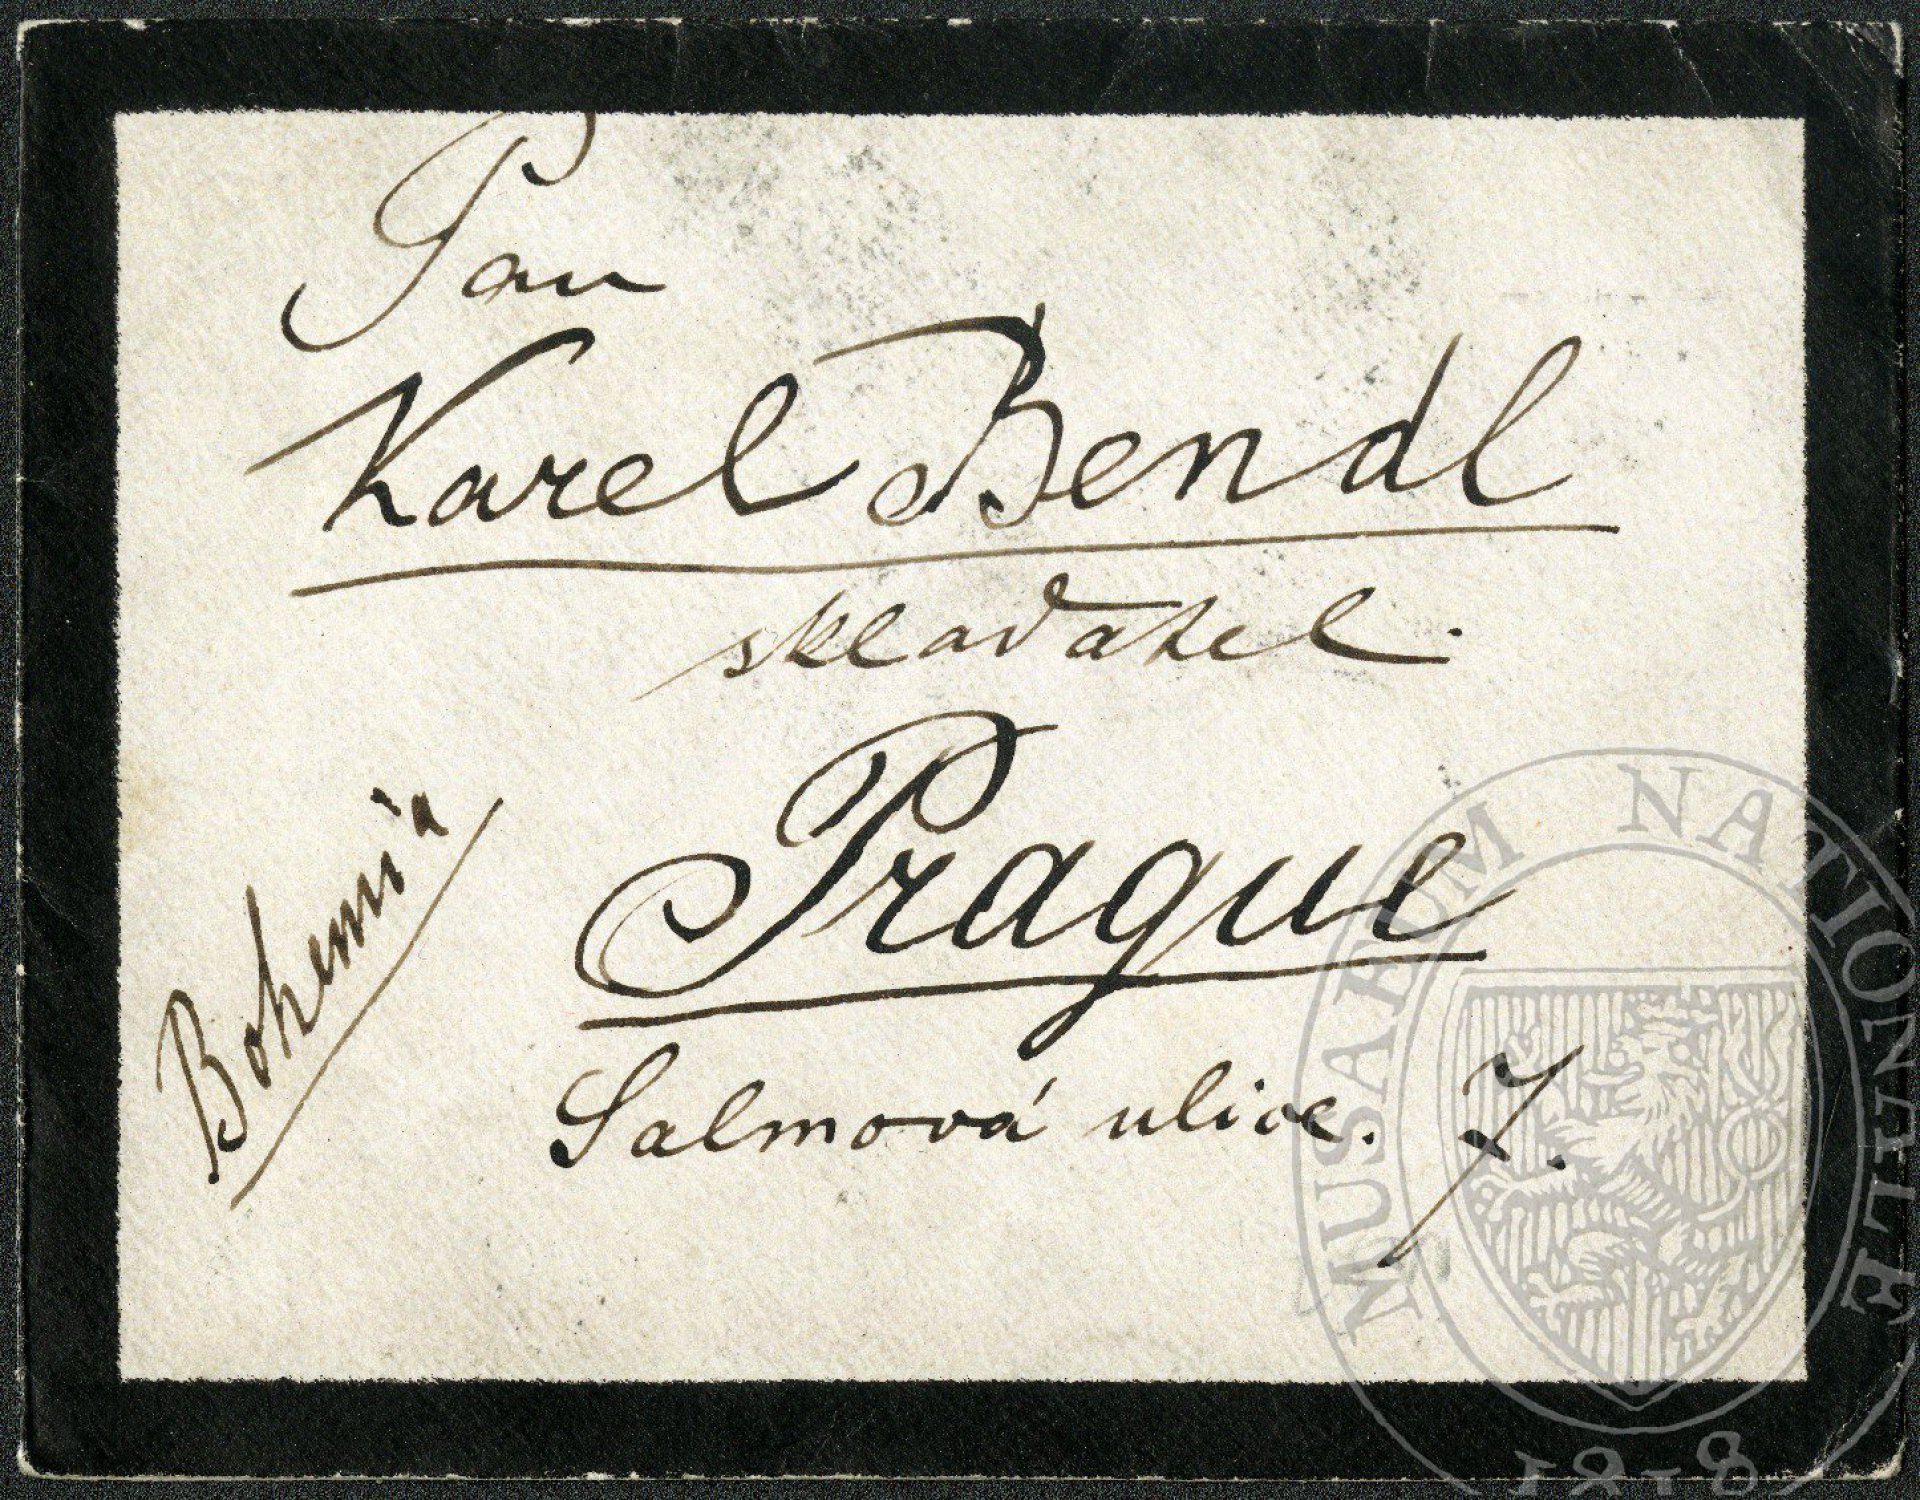 Pan
Karel Bendl
skladatel.
Prague
Salmová ulice. 7.
Bohemia
MUSAEUM NATIONALE
1818